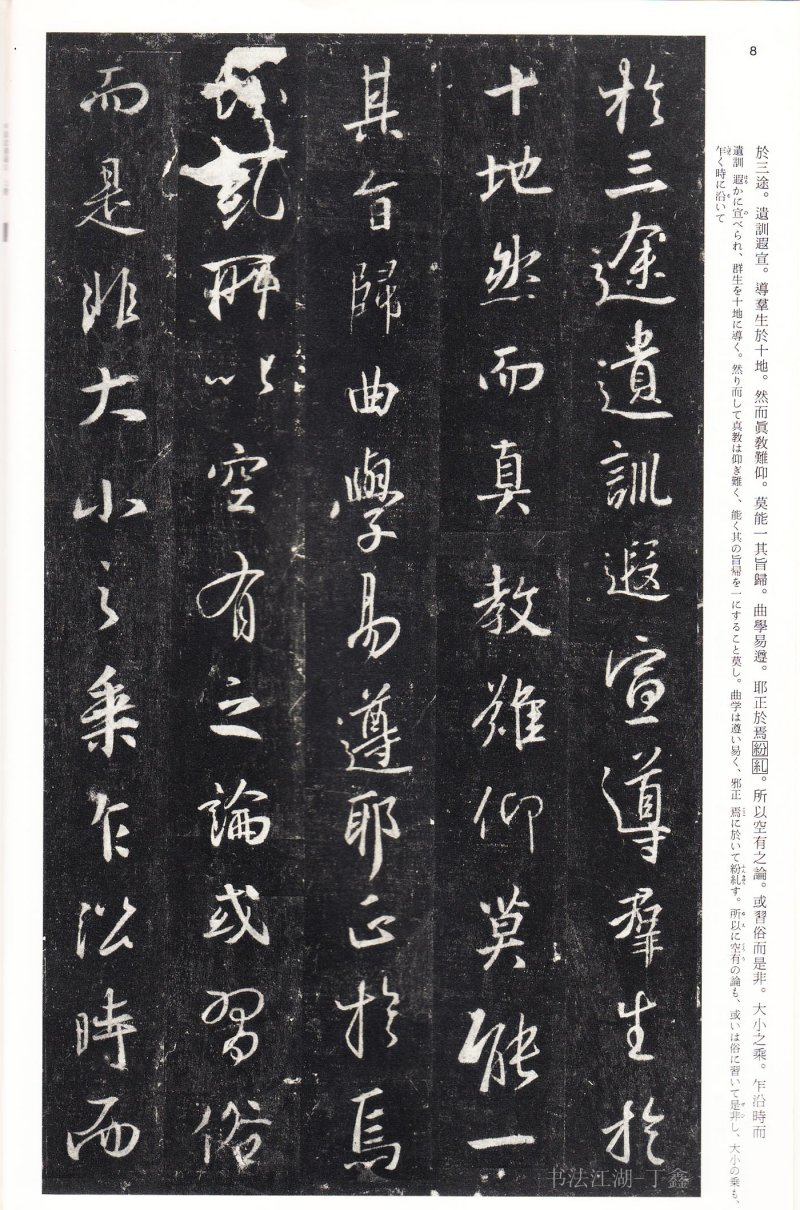 8
於三途。遺訓遐宣。導羣生於十地。然而眞敎難仰。莫能一其旨歸。曲學易遵。耶正於焉紛糺。所以空有之論。或習俗而是非。大小之乘。乍沿時而
遺訓 遐かに宣べられ、群生を十地に導く。然り而して真教は仰ぎ難く、能く其の旨帰を一にすること莫し。曲学は遵い易く、邪正 焉に於いて紛糺す。所以に空有の論も、或いは俗に習いて是非し、大小の乗も、
乍く時に沿いて
於三途遺訓遐宣導羣生於
十地然而真教難仰莫能一
其旨歸曲學易遵耶正於焉
紛糺所以空有之論或習俗
而是非大小之乘乍沿時而
书法江湖-丁鑫